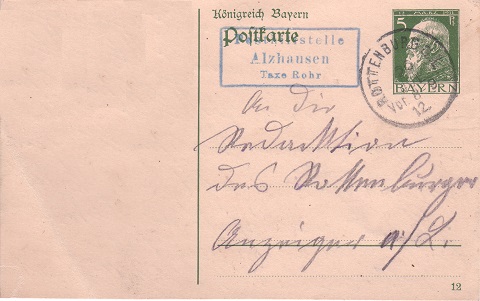 Königreich Bayern
Postkarte
Alzhausen
Taxe Rohr
5
BAYERN
ROTTENBURG
Vor.
12
An die
Redaktion
des Rottenburger
Anzeiger a/L.
12